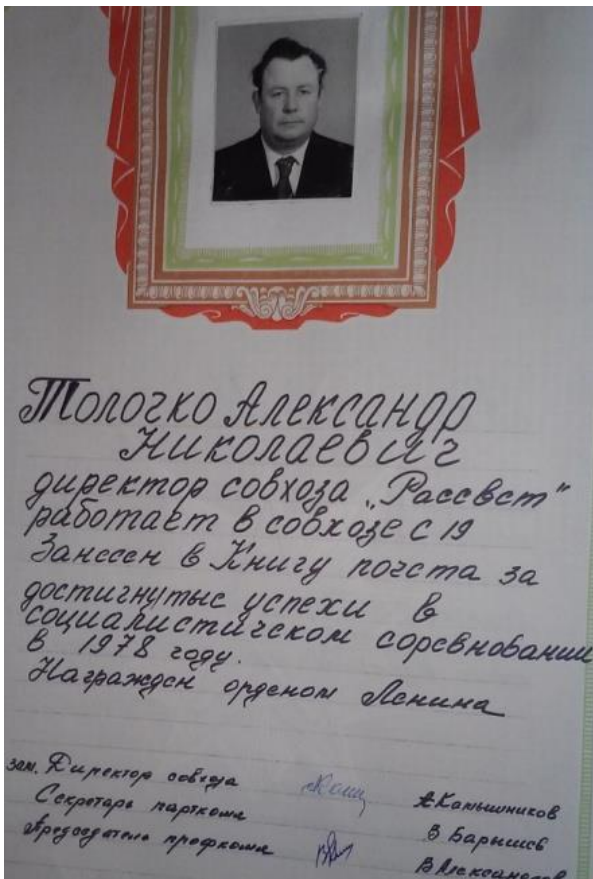 Толочко Александр
Николаевич
директор совхоза „Рассвет“
работает в совхозе с 19
Занесен в Книгу почета за
достигнутые успехи в
социалистическом соревновании
в 1978 году.
Награжден орденом Ленина
зам. Директор совхоза А Камышников
Секретарь парткома З Барышев
Председатель профкома В Александров